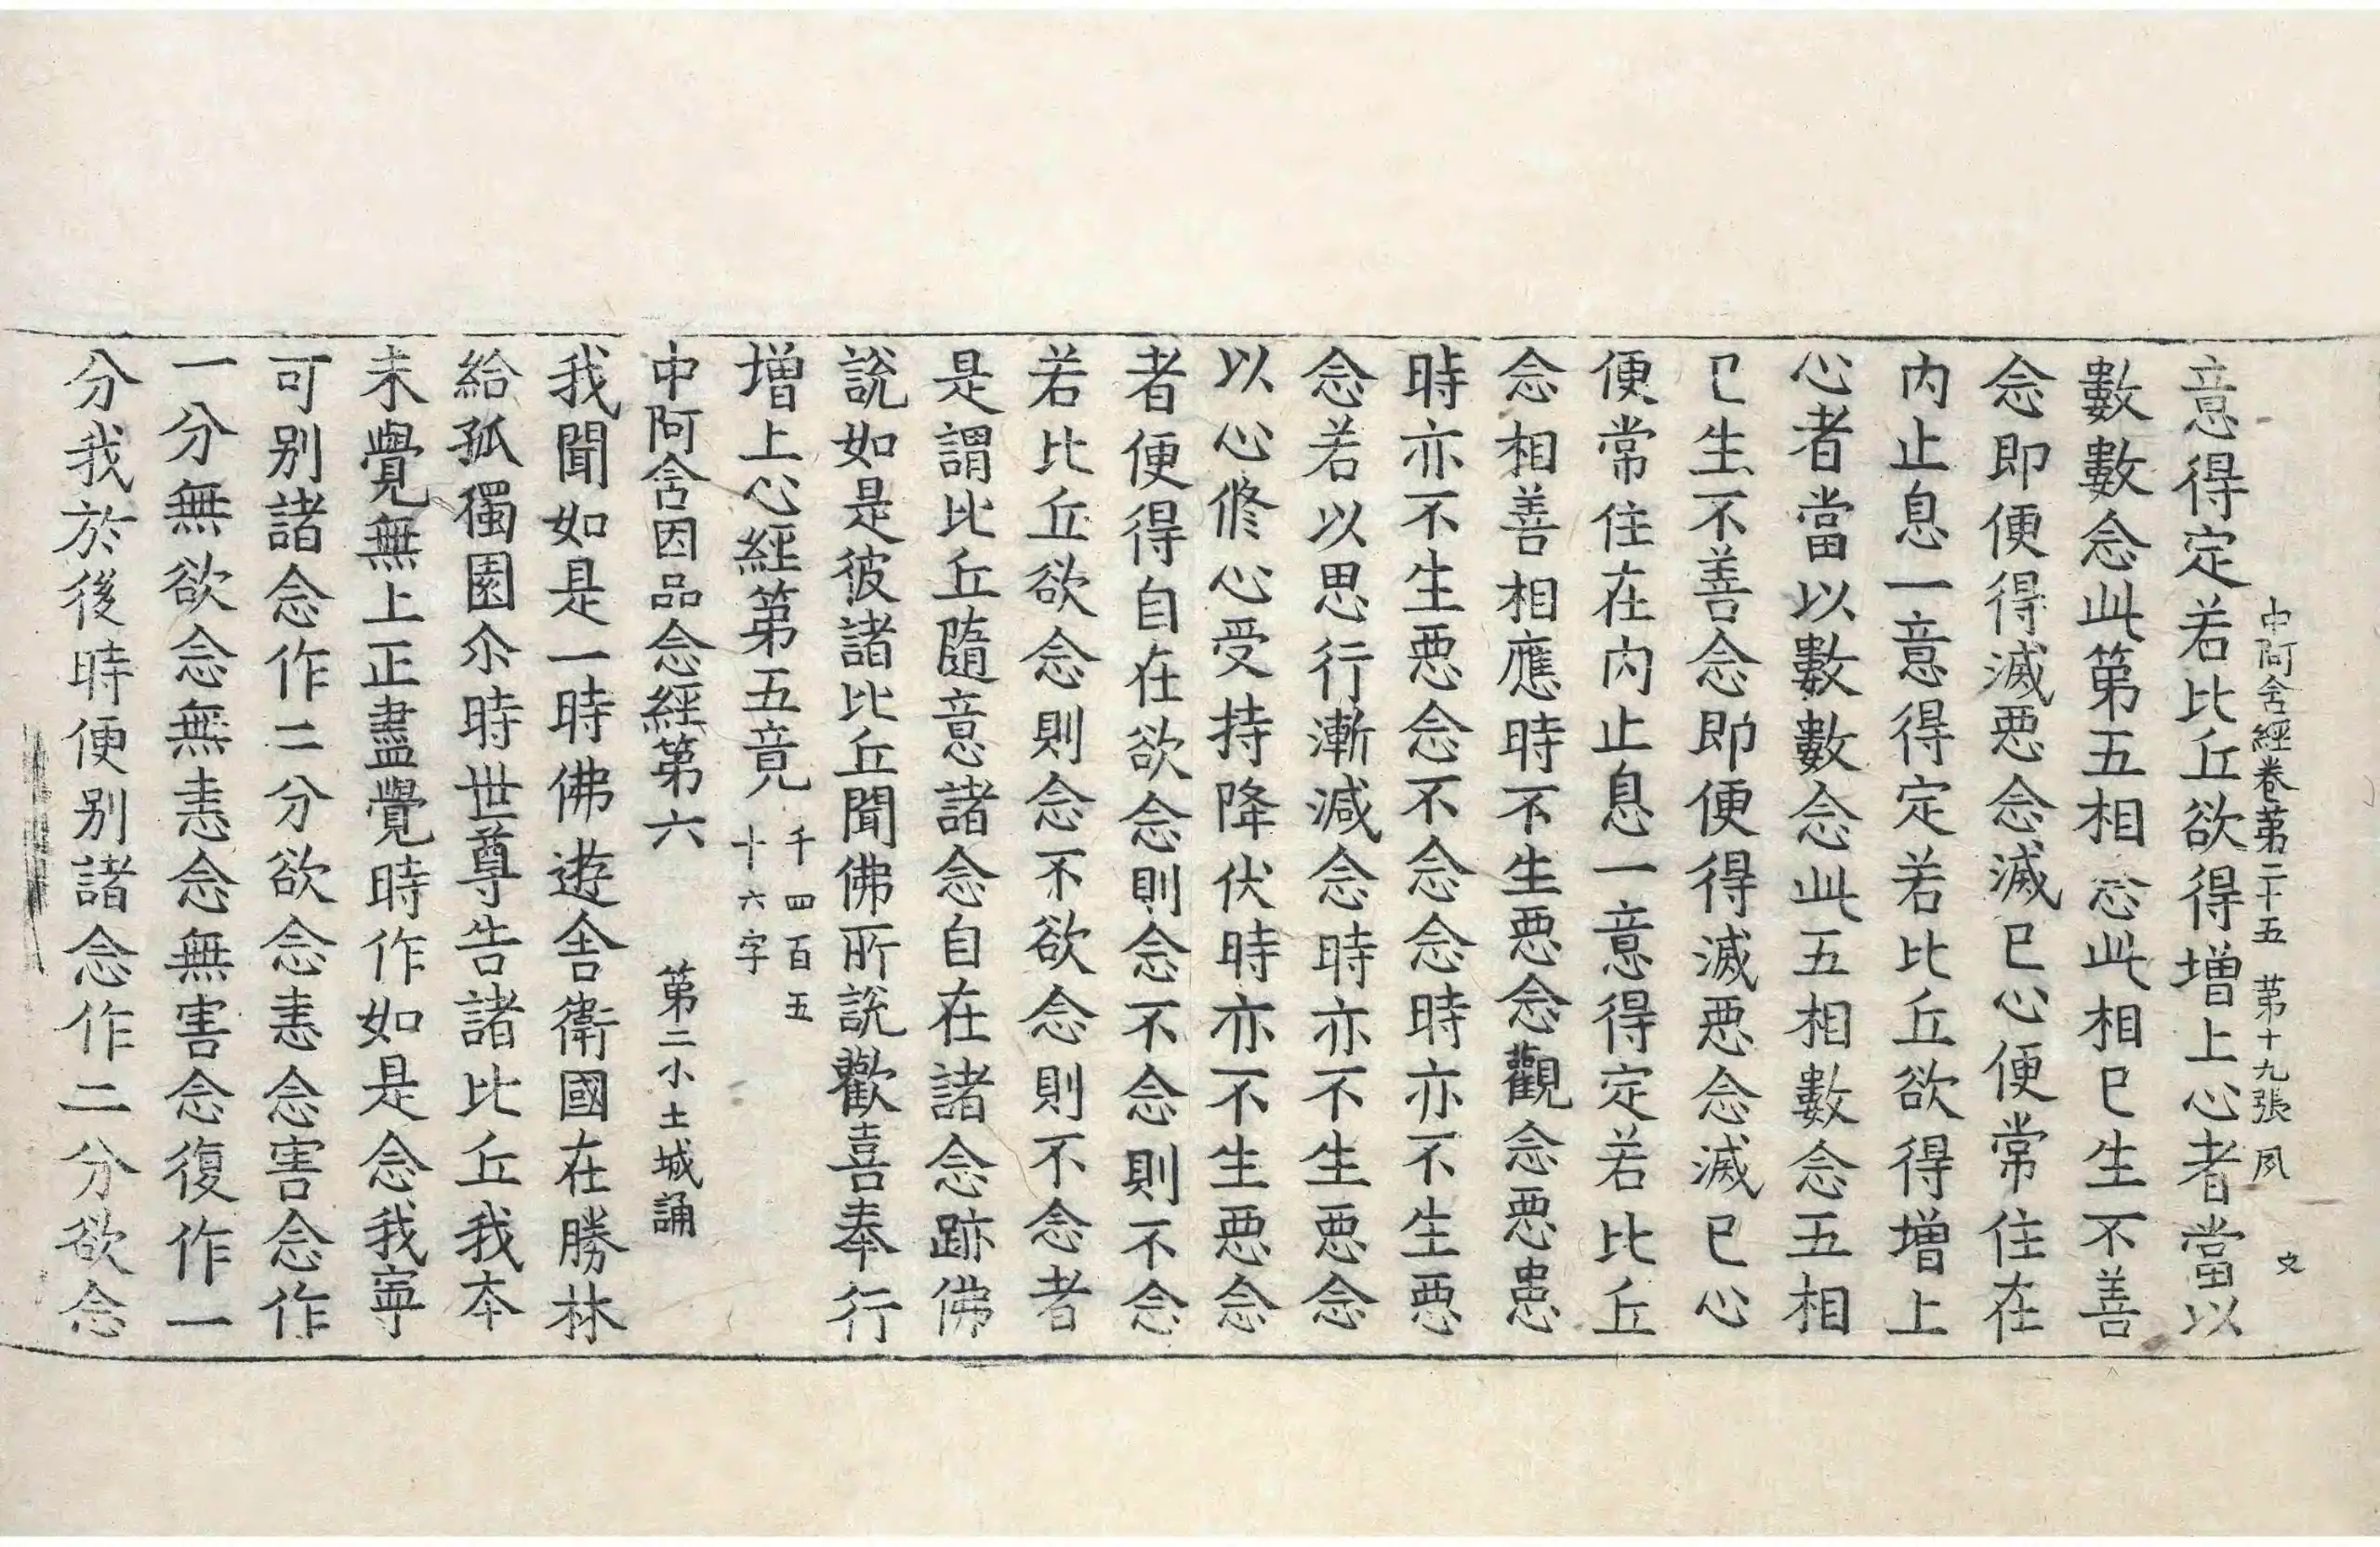 中阿含經卷第二十五　第十九張　夙
文
意得定若比丘欲得增上心者當以
數數念此第五相念此相已生不善
念即便得滅惡念滅已心便常住在
內止息一意得定若比丘欲得增上
心者當以數數念此五相數念五相
已生不善念即便得滅惡念滅已心
便常住在內止息一意得定若比丘
念相善相應時不生惡念觀念惡患
時亦不生惡念不念念時亦不生惡
念若以思行漸減念時亦不生惡念
以心修心受持降伏時亦不生惡念
者便得自在欲念則念不念則不念
若比丘欲念則念不欲念則不念者
是謂比丘隨意諸念自在諸念跡佛
說如是彼諸比丘聞佛所說歡喜奉行
增上心經第五竟　千四百五
十六字
中阿含因品念經第六　第二小土城誦
我聞如是一時佛遊舍衛國在勝林
給孤獨園尒時世尊告諸比丘我本
未覺無上正盡覺時作如是念我寧
可別諸念作二分欲念恚念害念作
一分無欲念無恚念無害念復作一
分我於後時便別諸念作二分欲念